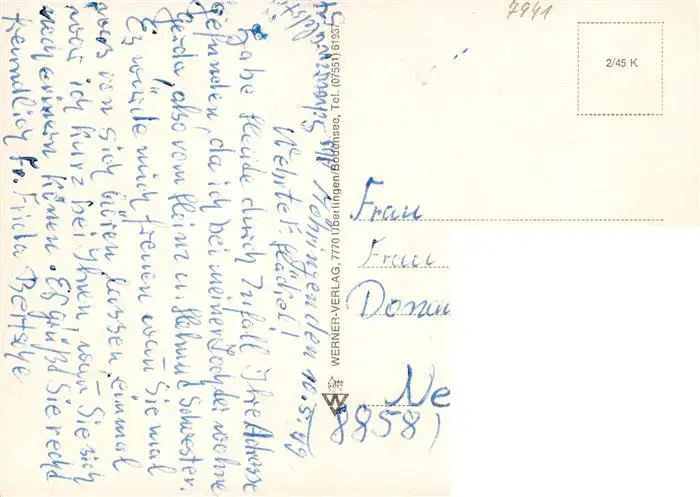 7941
2/45 K
Möhringen den 10.5.79
Habe Heute durch Zufall Ihre Adresse
gefunden, da ich bei meiner Tochter wohne
Gerda, also vom Heinz u. Helmut Schwester.
Es würde mich freuen wen Sie mal
was von sich hören lassen, einmal
war ich kurz bei Ihnen, wen Sie sich
noch erinern könen. Es grüßd Sie recht
Freundlich Fr. Frida Bertsche
WERNER-VERLAG, 7770 Überlingen/Bodensee, Tel. (07551) 61937
W
Frau
Frau
Donau
Ne
8858)